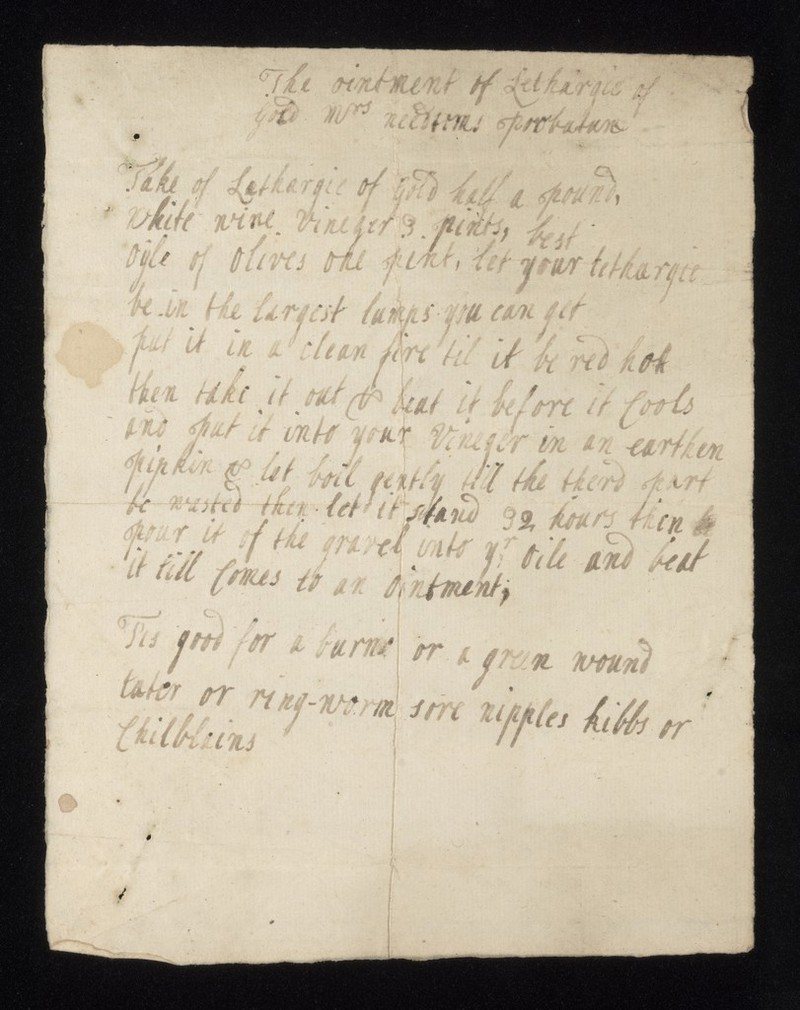 The ointment of Lethargie of
Gold Mrs needtoms probatum
Take of Lethargie of Gold half a pound,
white wine Vineger 3 pints, best
Oyle of Olives one pint, let your Lethargie
be in the largest lumps you can get
put it in a clean fire til it be red hot
then take it out & beat it before it Cools
and put it into your Vineger in an earthen
pipkin & let boil gently till the therd part
be wasted then let it stand 32 hours then
pour it of the gravel into yr Oile and beat
it till Comes to an Ointment;
Tis good for a burne or a green wound
tater or ring-worm sore nipples kibbs or
Chilblains